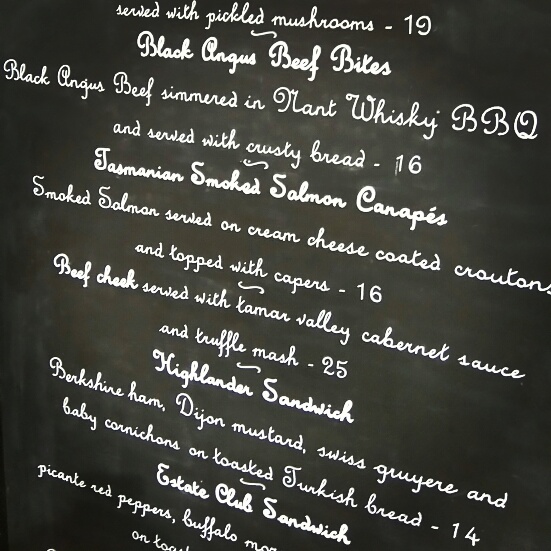 served with pickled mushrooms - 19
Black Angus Beef Bites
Black Angus Beef simmered in Nant Whisky BBQ
and served with crusty bread - 16
Tasmanian Smoked Salmon Canapés
Smoked Salmon served on cream cheese coated croutons
and topped with capers - 16
Beef cheek served with tamar valley cabernet sauce
and truffle mash - 25
Highlander Sandwich
Berkshire ham, Dijon mustard, swiss gruyere and
baby cornichons on toasted Turkish bread - 14
Estate Club Sandwich
picante red peppers, buffalo
on